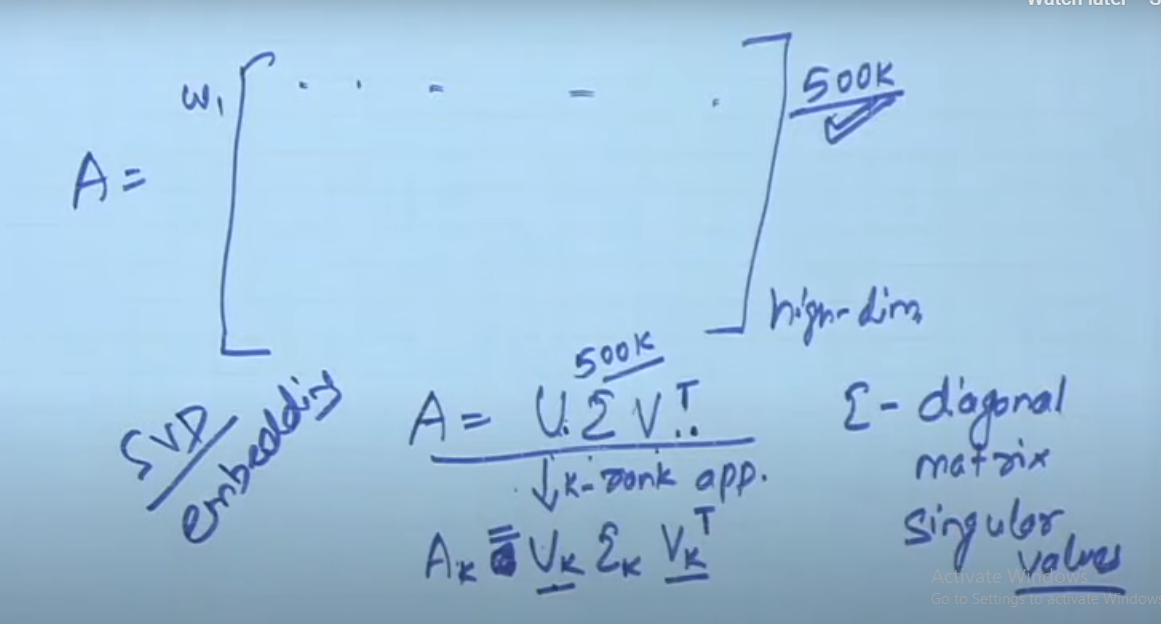 Watch later
w₁
500K
A =
high-dim
SVD
embedding
500K
A = U Σ Vᵀ
↓ K-rank app.
Aₖ = Uₖ Σₖ Vₖᵀ
Σ - diagonal
matrix
singular
values
Activate Windows
Go to Settings to activate Windows